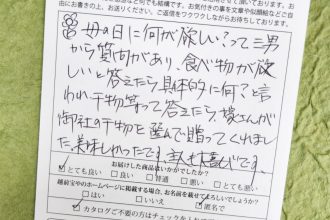 由にお書きの上、お送りください。
ご返信をワクワクしながらお待ちしております。
母の日に何が欲しい？って三男
から質問があり、食べ物が欲し
いと答えたら具体的に何？と言
われ干物等って答えたら、嫁さんが
御社の干物を選んで贈ってくれまし
た。美味しかったです。主人も喜んでいます。
お届けした商品はいかがでしたか？
とても良い 良い 普通 悪い とても悪い
越前宝やのホームページに掲載する場合、お名前を載せてもよろしいでしょうか？
はい いいえ 匿名で
カタログご不要の方はチェックを入れて